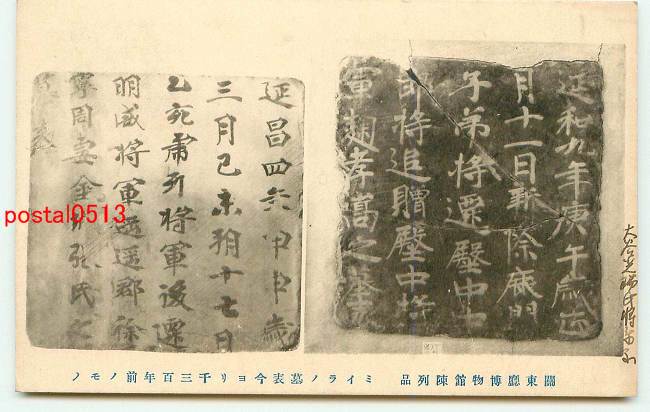 延和九年庚午歲
月十一日新除鹿門
子弟將遷殿中中
郎將追贈殿中將
軍麴孝嵩之墓表
延昌四年甲申歲
三月己未朔十七日
乙亥虎牙將軍後遷
明威將軍遥遥郡徐
寧周妻金城張氏之
墓表
大谷光瑞氏將
關東廳博物館陳列品 ミイラノ墓表今ヨリ千三百年前ノモノ
postal0513